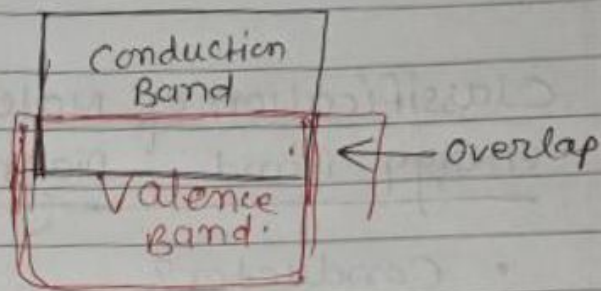 Conduction
Band
overlap
Valence
Band.